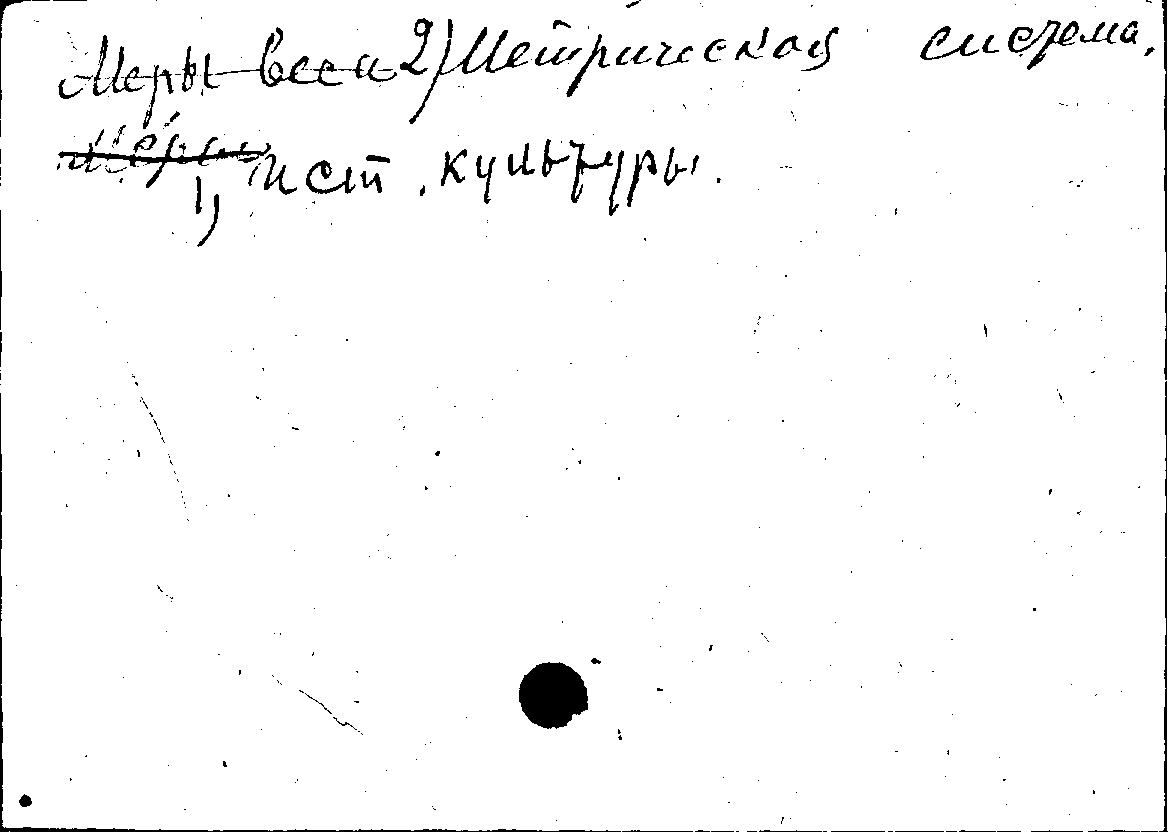 Меры веса 2) Метрическая система.
Меры
1) Ист. культуры.